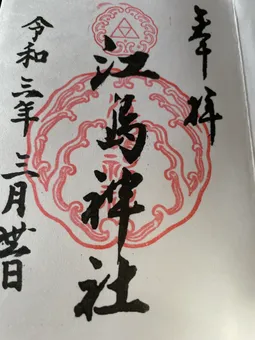 奉拝
江島神社
令和三年三月卅日